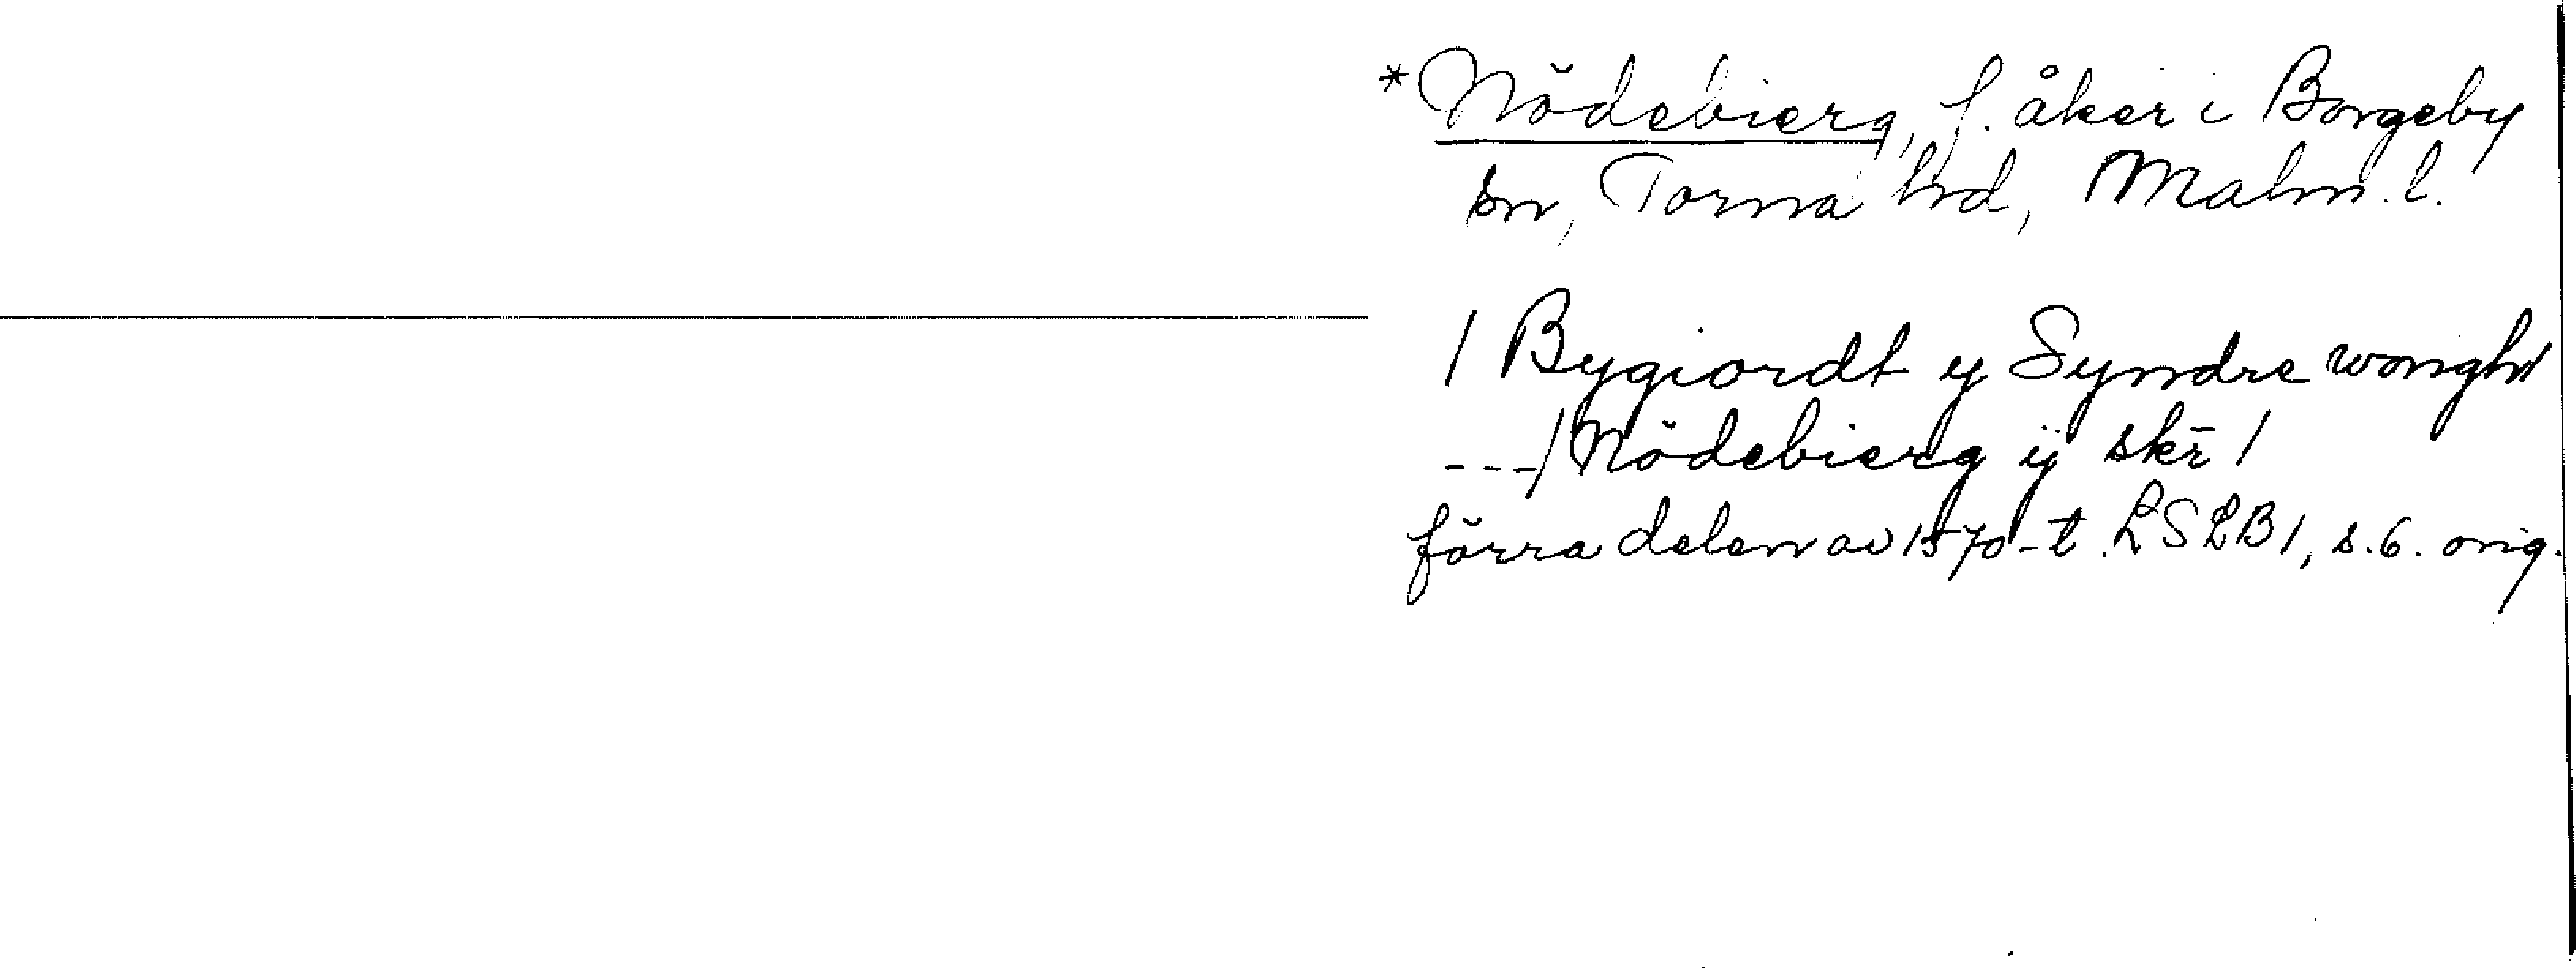 *Nödebierg, f. åker i Borgeby
sn, Torna hd, Malm. l.
/ Bygiordt y Syndre wonghl
---/ Nödebierg ij skr̄ /
förra delen av 1570-t. LSLB 1, s. 6. orig.